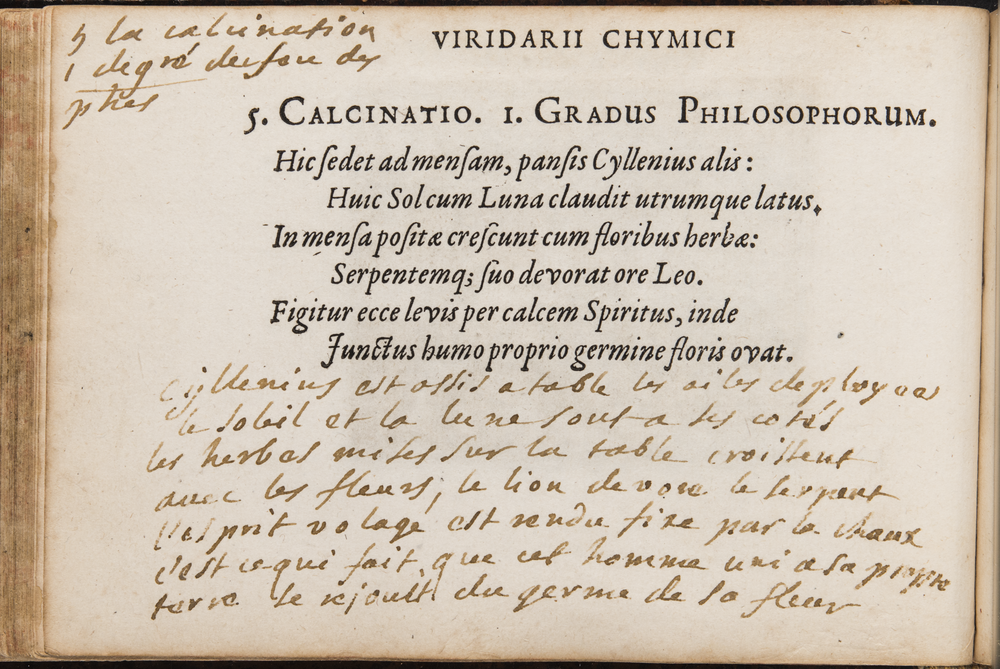 5 la calcination
1 degré du feu des
phes
VIRIDARII CHYMICI
5. CALCINATIO. 1. GRADUS PHILOSOPHORUM.
Hic ſedet ad menſam, panſis Cyllenius alis:
Huic Sol cum Luna claudit utrumque latus.
In menſa poſitæ creſcunt cum floribus herbæ:
Serpentemq; ſuo devorat ore Leo.
Figitur ecce levis per calcem Spiritus, inde
Junctus humo proprio germine floris ovat.
Cyllenius est assis a table les ailes deployees
le soleil et la lune sont a ses cotés
les herbes mises sur la table croissent
avec les fleurs, le lion devore le serpent
l'esprit volage est rendu fixe par la chaux
c'est ce qui fait que cet homme uni a sa propre
terre se rejouit du germe de sa fleur